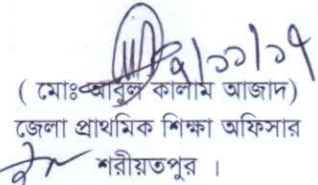 ৭/১১/১৭
( মোঃ আবুল কালাম আজাদ)
জেলা প্রাথমিক শিক্ষা অফিসার
শরীয়তপুর ।